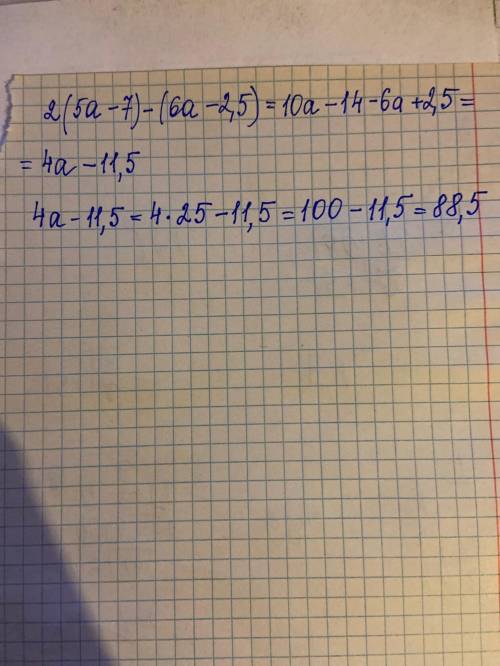 2(5a-7)-(6a-2,5)=10a-14-6a+2,5=
=4a-11,5
4a-11,5=4·25-11,5=100-11,5=88,5